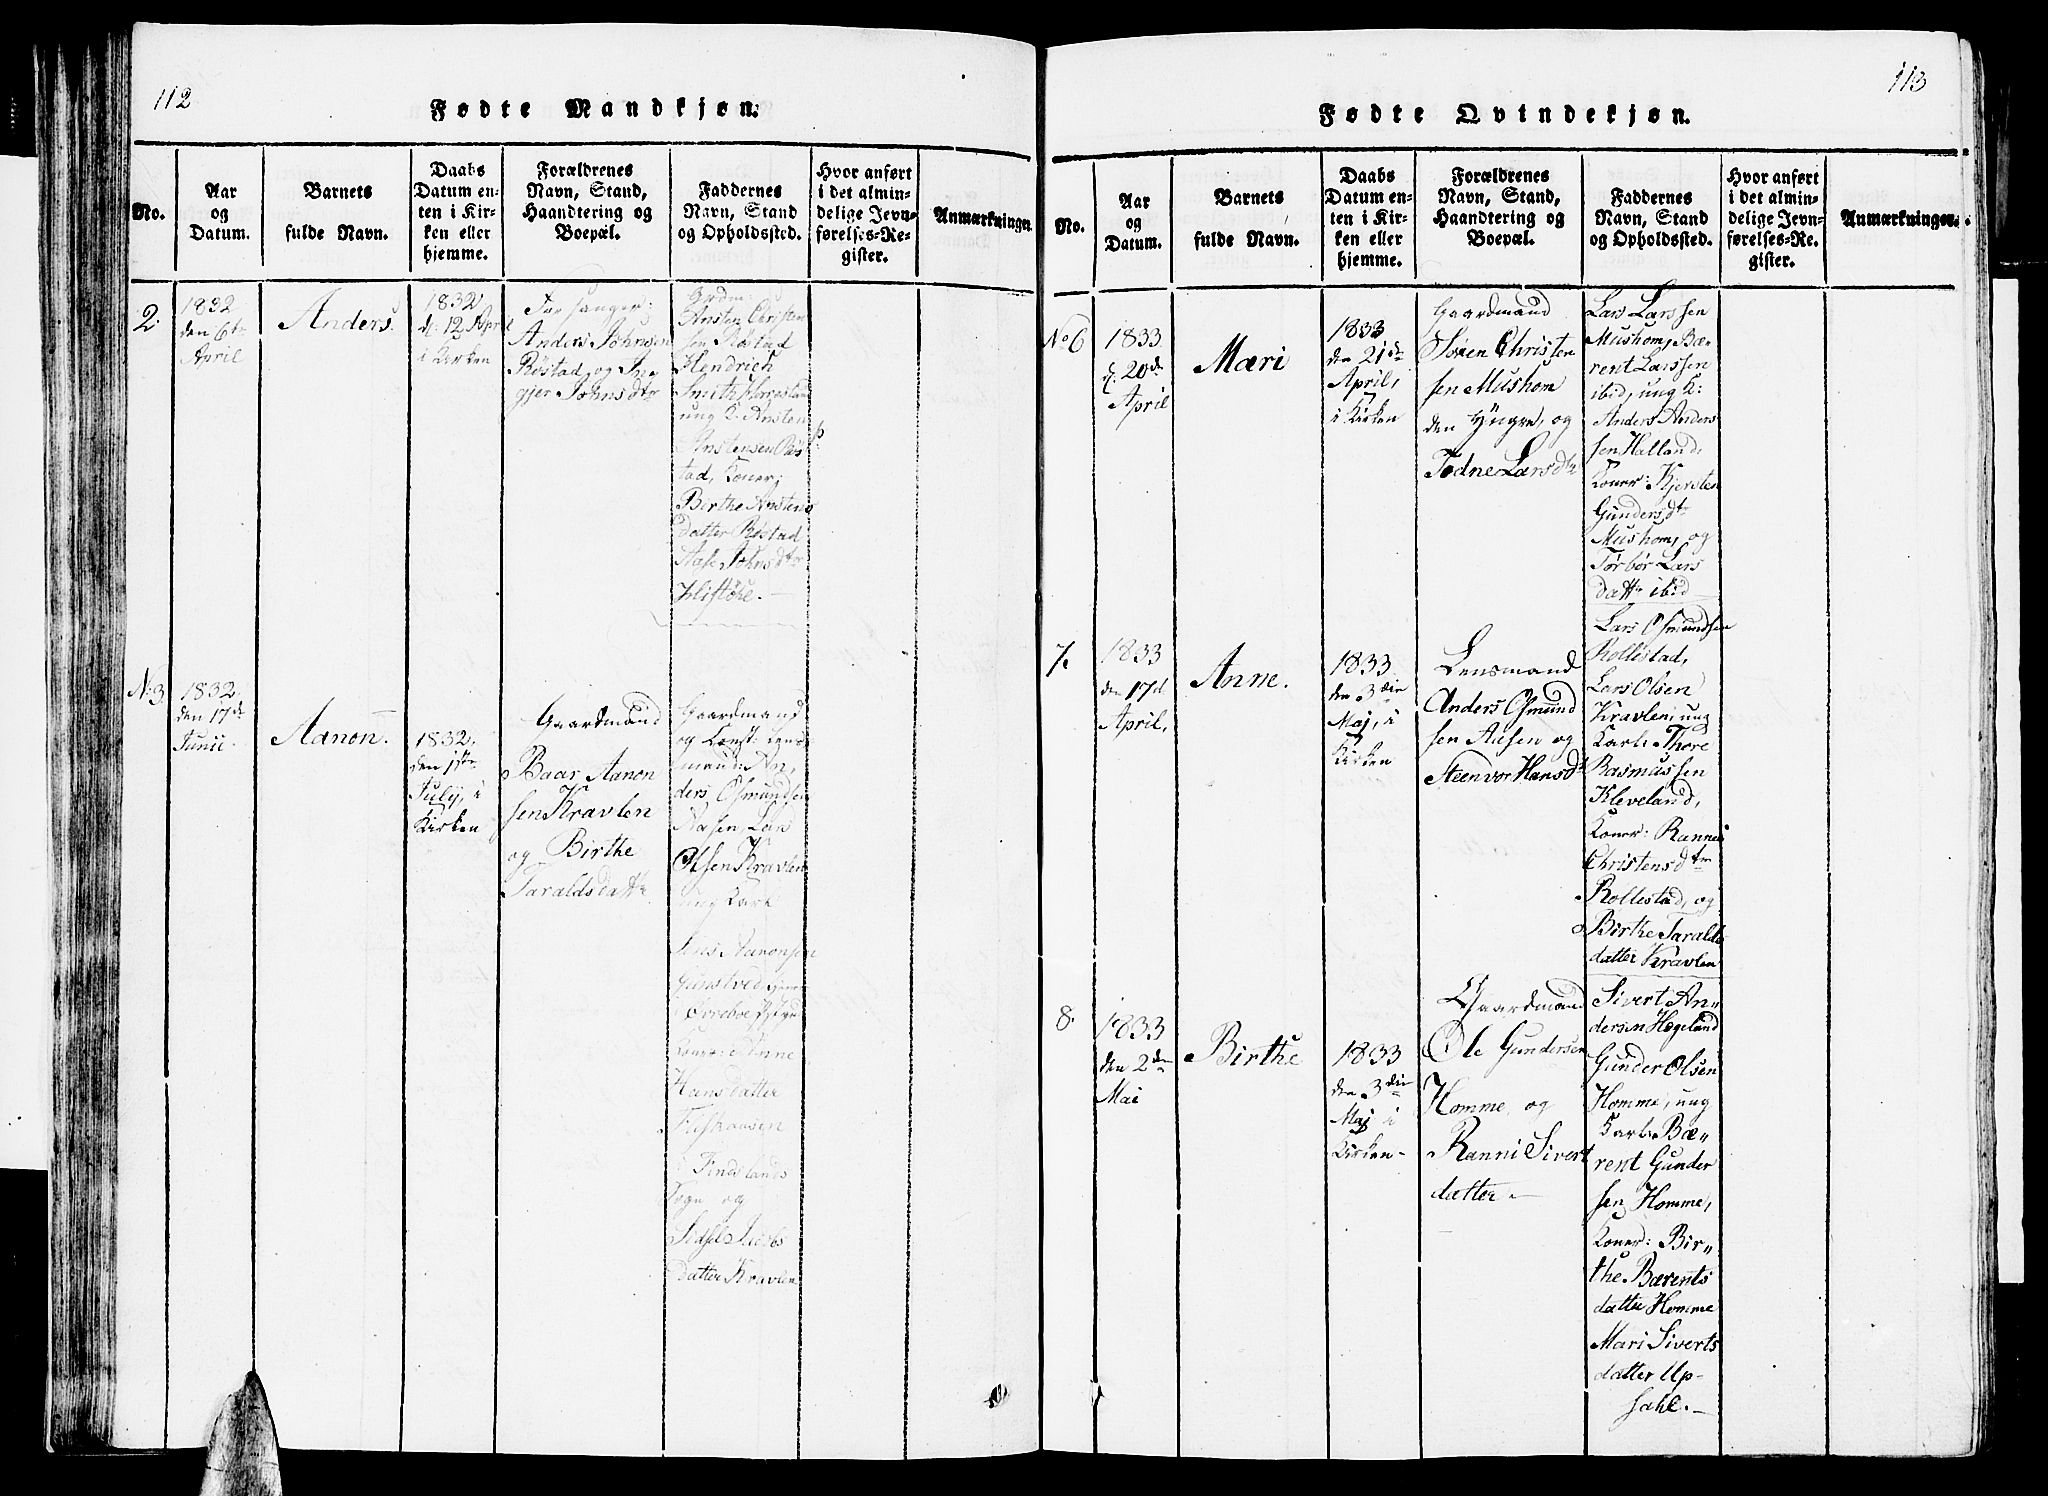 112
Fødte Mandkjøn.
No.
Aar
og
Datum.
Barnets
fulde Navn.
Daabs
Datum en-
ten i Kir-
ken eller
hjemme.
Forældrenes
Navn, Stand,
Haandtering og
Boepæl.
Faddernes
Navn, Stand
og Opholdssted.
Hvor anført
i det almin-
delige Jevn-
førelses-Re-
gister.
Anmærkninger.
2.
1832
den 6te
April
Anders.
1832
d: 12 April
i Kirken
Forsanger:
Anders Johnsen
Røstad og In-
gjer Johnsdtr
Grdm:
Ansten Christen
sen Røstad
Hendrich
Smith
ung K: Ansten
Anstensen Røs
tad, Koner;
Birthe Anstens
datter Røstad
Aase Johnsdtr
No 3.
1832.
den 17de
Junii.
Aanon.
1832.
den 1ste
July, i
Kirken
Gaardmand
Baar Aanon
sen Kravlen
og Birthe
Taraldsdattr
Gaardmand
og Const: Lens
mand: An,
ders Osmundsen
Aasen, Lars
Olsen Kravlen
ung Karl
Jens Aanonsen
Koner: Anne
Hansdatter
Findslands
Sogn og
Sidsel
datter Kravlen
113
Fødte Qvindekjøn.
No.
Aar
og
Datum.
Barnets
fulde Navn.
Daabs
Datum en-
ten i Kir-
ken eller
hjemme.
Forældrenes
Navn, Stand,
Haandtering og
Boepæl.
Faddernes
Navn, Stand
og Opholdssted.
Hvor anført
i det almin-
delige Jevn-
førelses-Re-
gister.
Anmærkninger.
No 6
1833
d: 20de
April
Mæri
1833
den 21de
April,
i Kirken
Gaardmand
Søren Christen
sen Mushom
den Yngre, og
Todne Larsdtr
Lars Larssen
Mushom, Bæ-
rent Larssen
ibid, ung K:
Anders Anders
sen Halland,
Koner: Kjersten
Gundersdtr
Mushom, og
Tørbør Lars
dattr ibid
7.
1833
den 17d
April,
Anne.
1833
den 3die
Maj, i
Kirken
Lensmand
Anders Osmund
sen Aasen og
Steenvor Hansdtr
Lars Osmundsen
Rollestad,
Lars Olsen
Kravlen, ung
Karl: Thore
Rasmussen
Kleveland,
Koner: Rannei
Christensdtr
Rollestad, og
Birthe Taralds
datter Kravlen
8.
1833
den 2den
Mai
Birthe
1833
den 3die
Maj i
Kirken
Gaardmand
Ole Gundersen
Homme, og
Ranni Sivert
datter.
Sivert An"
dersen Hægeland
Gunder Olsen
Homme, ung
Karl: Bæ"
rent Gunder
sen Homme,
Koner: Bir"
the Bærents
datter Homme
Mari Siverts
datter Up-
sahl.